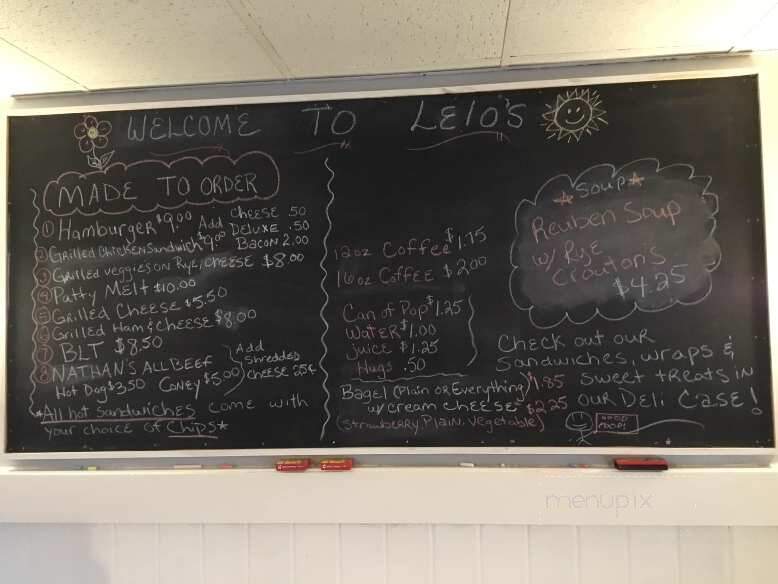 WELCOME TO LELO'S
MADE TO ORDER
① Hamburger $9.00 Add Cheese .50
② Grilled Chicken Sandwich $9.00 Deluxe .50
Bacon 2.00
③ Grilled veggies on Rye/cheese $8.00
④ Patty Melt $10.00
⑤ Grilled Cheese $5.50
⑥ Grilled Ham & Cheese $8.00
⑦ BLT $8.50
⑧ NATHAN'S ALL BEEF
Hot Dog $3.50 Coney $5.00
Add
shredded
cheese 25¢
*All hot sandwiches come with
your choice of Chips*
12oz Coffee $1.75
16oz Coffee $2.00
Can of Pop $1.25
Water $1.00
Juice $1.25
Hugs .50
Bagel (Plain or Everything) $1.85
w/ cream cheese $2.25
(Strawberry, Plain, Vegetable)
*Soup*
Reuben Soup
w/ Rye
Croutons
$4.25
Check out our
Sandwiches, wraps &
sweet treats in
our Deli Case!
menupix